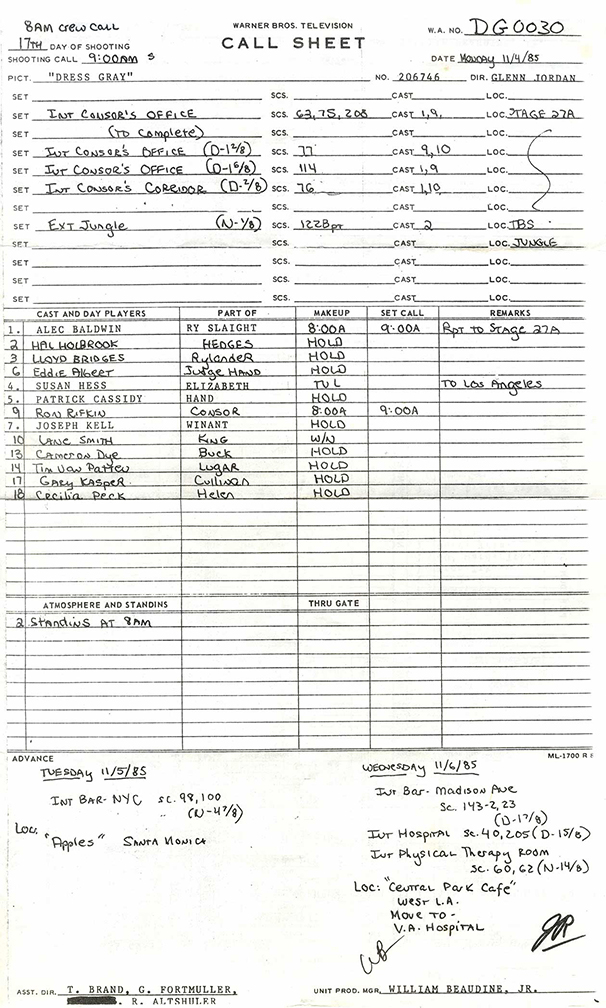 8AM Crew Call
WARNER BROS. TELEVISION
W.A. NO. DG0030
17TH DAY OF SHOOTING
CALL SHEET
SHOOTING CALL 9:00AM S
DATE Monday 11/4/85
PICT. "DRESS GRAY" NO. 206746 DIR. GLENN JORDAN
SET SCS. CAST LOC.
SET INT CONSOR'S OFFICE SCS. 63, 75, 208 CAST 1,9, LOC. STAGE 27A
SET (TO Complete) SCS. CAST LOC.
SET INT CONSOR'S OFFICE (D-1 2/8) SCS. 77 CAST 9,10 LOC.
SET INT CONSOR'S OFFICE (D-1 6/8) SCS. 114 CAST 1,9 LOC.
SET INT CONSOR'S CORRIDOR (D-2/8) SCS. 76 CAST 1,10 LOC.
SET SCS. CAST LOC.
SET EXT Jungle (N-1/8) SCS. 122B pt CAST 2 LOC. TBS
SET SCS. CAST LOC. JUNGLE
SET SCS. CAST LOC.
SET SCS. CAST LOC.
SET SCS. CAST LOC.
CAST AND DAY PLAYERS PART OF MAKEUP SET CALL REMARKS
1. ALEC BALDWIN RY SLAIGHT 8:00A 9:00A Rpt to STAGE 27A
2 HAL HOLBROOK HEDGES HOLD
3 LLOYD BRIDGES Rylander HOLD
6 Eddie Albert Judge HAND HOLD
4. SUSAN HESS ELIZABETH TVL TO Los Angeles
5. PATRICK CASSIDY HAND HOLD
9 RON RIFKIN CONSOR 8:00A 9:00A
7. JOSEPH KELL WINANT HOLD
10 LANE SMITH KING W/N
13 Cameron Dye Buck HOLD
14 Tim Van Patten LUGAR HOLD
17 Gary Kasper Cullinan HOLD
18 Cecilia Peck Helen HOLD
ATMOSPHERE AND STANDINS THRU GATE
2 Standins AT 8AM
ADVANCE
ML-1700 R
TUESDAY 11/5/85
INT BAR- NYC sc. 98,100
(N-4 7/8)
Loc. "Apples" SANTA MONICA
WEDNESDAY 11/6/85
INT Bar- Madison Ave
Sc. 143-2, 23
(D-1 7/8)
INT Hospital Sc. 40, 205 (D-1 5/8)
INT Physical Therapy Room
Sc. 60, 62 (N-1 4/8)
Loc: "Central Park Cafe"
WEST L.A.
MOVE TO -
V.A. HOSPITAL
ASST. DIR. T. BRAND, G. FORTMULLER,
R. ALTSHULER
UNIT PROD. MGR. WILLIAM BEAUDINE, JR.